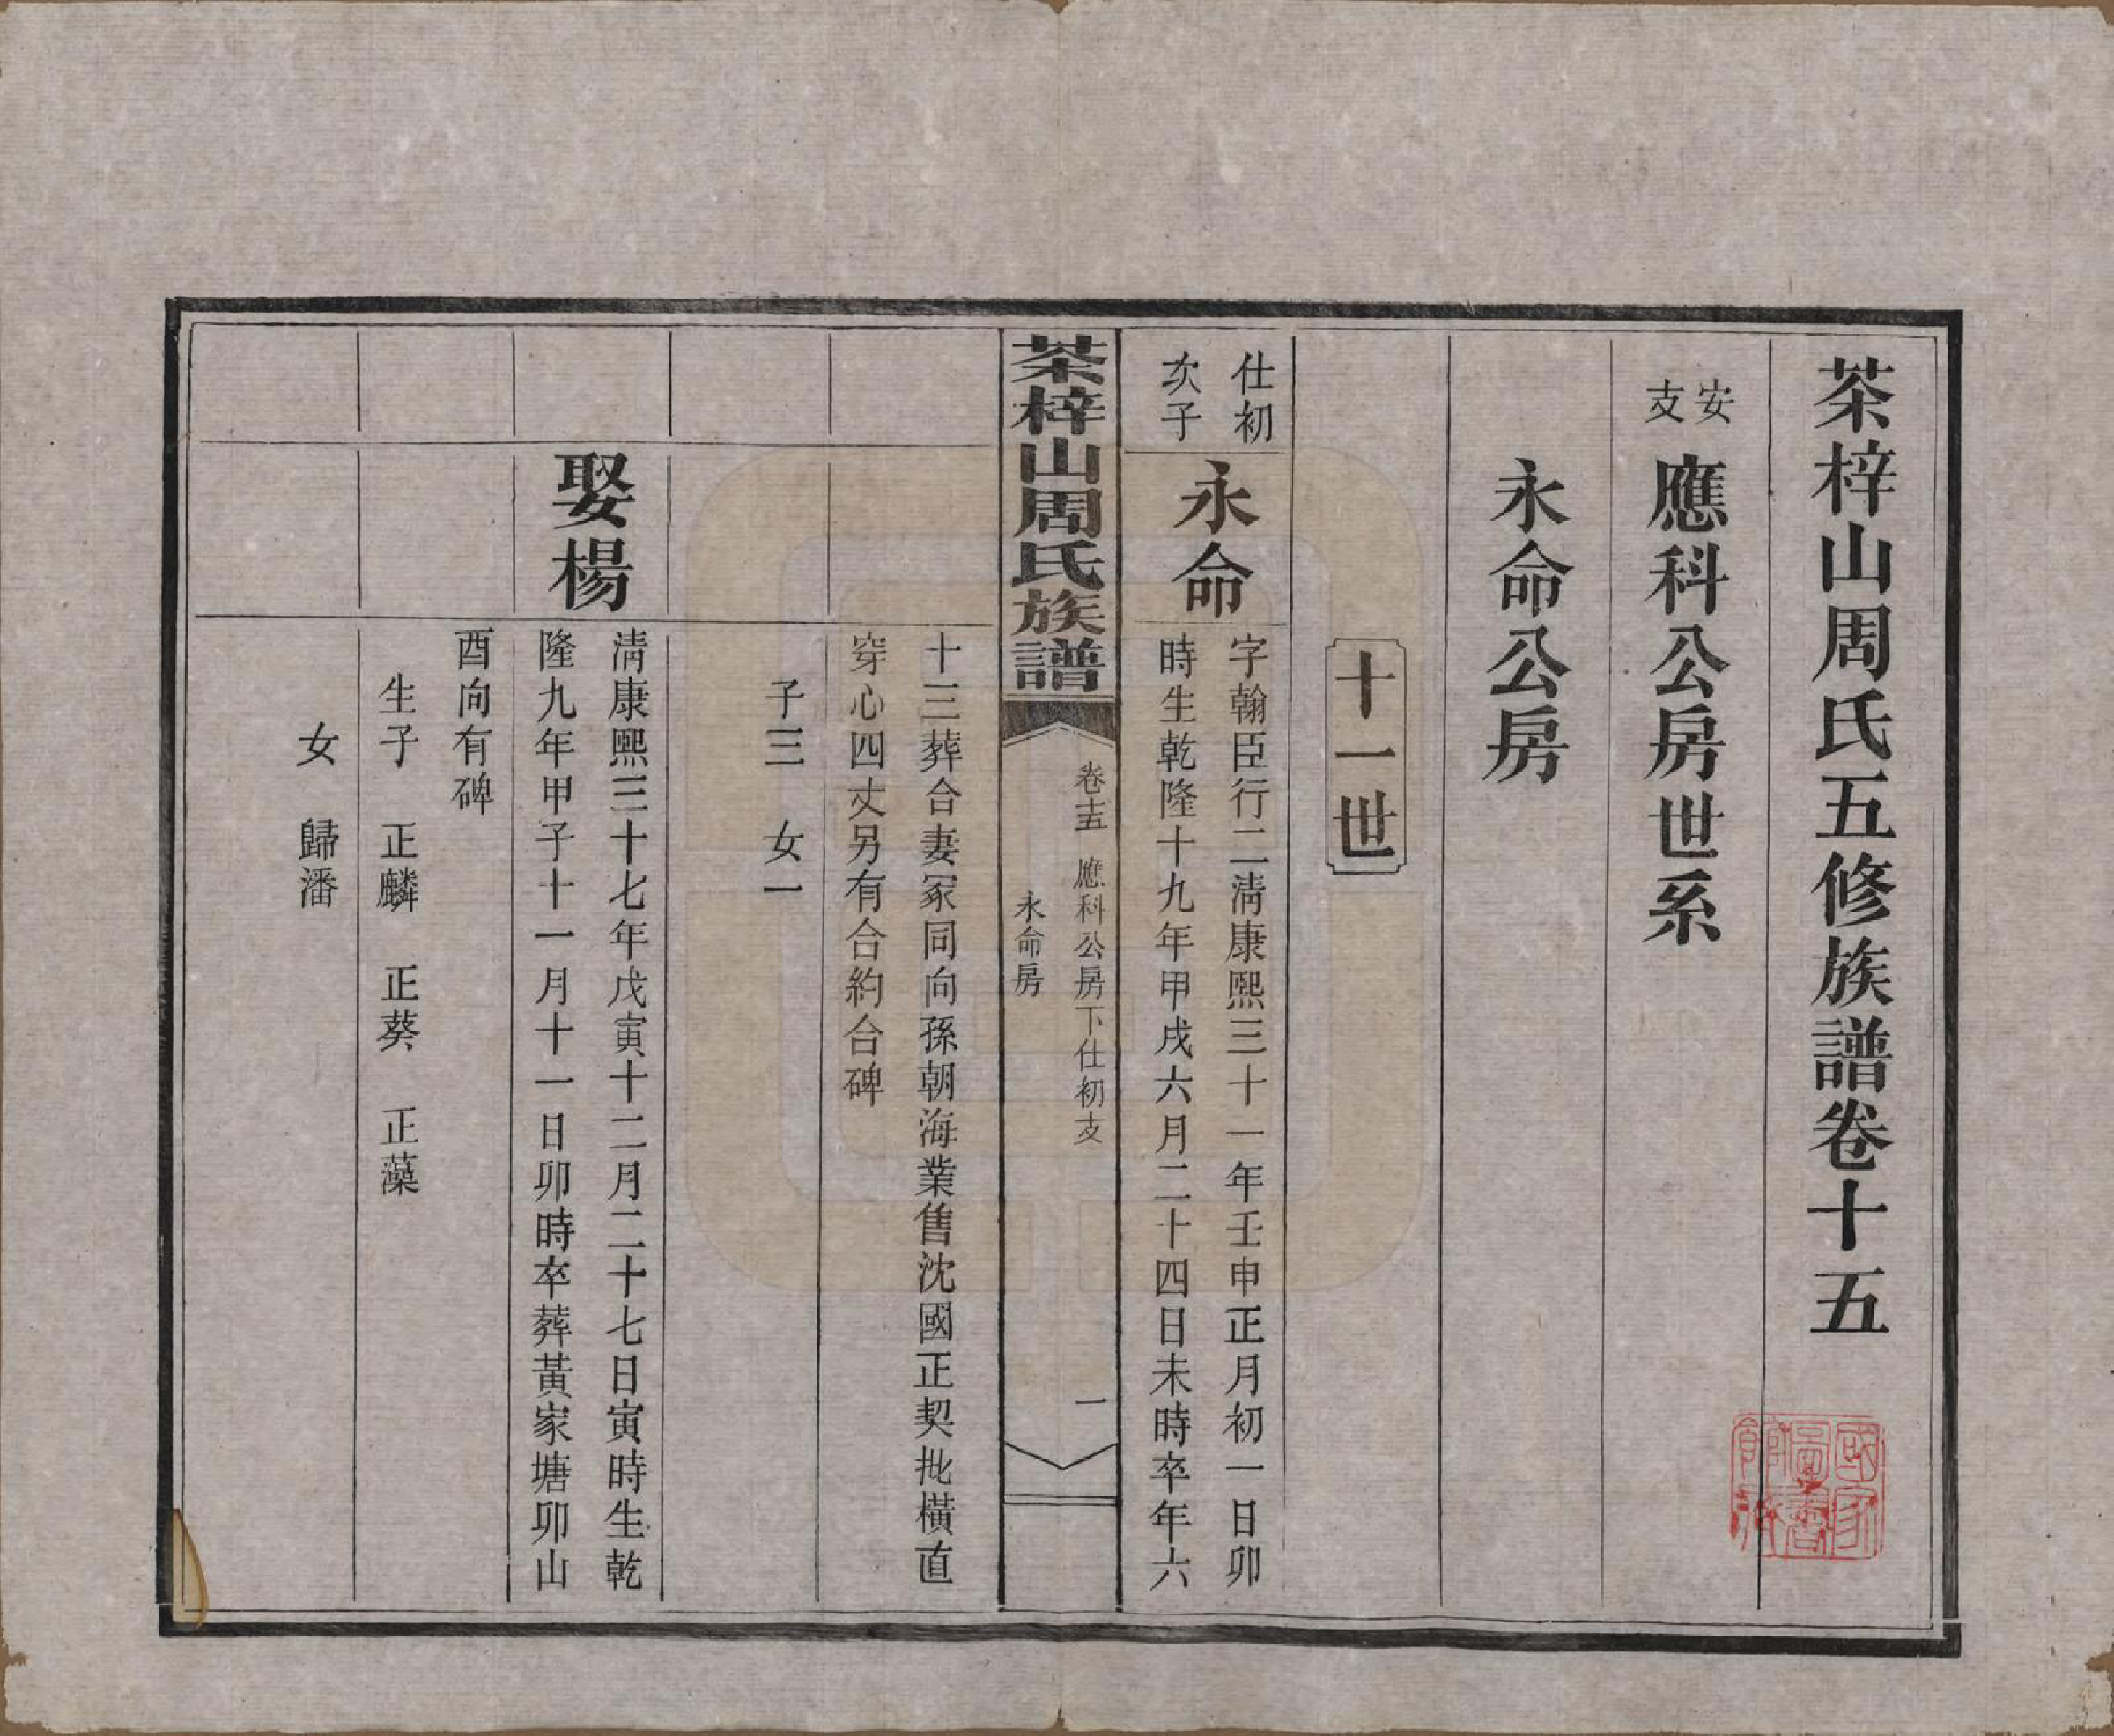 茶梓山周氏五修族譜卷十五
安支
應科公房世系
永命公房
十一世
仕初
次子
永命
字翰臣行二淸康熙三十一年壬申正月初一日卯
時生乾隆十九年甲戌六月二十四日未時卒年六
茶梓山周氏族譜
卷十五 應科公房下仕初支
永命房
一
十三葬合妻冢同向孫朝海業售沈國正契批橫直
穿心四丈另有合約合碑
子三 女一
娶楊
淸康熙三十七年戊寅十二月二十七日寅時生乾
隆九年甲子十一月十一日卯時卒葬黃家塘卯山
酉向有碑
生子 正麟 正葵 正藻
女 歸潘
國家
圖書
館藏